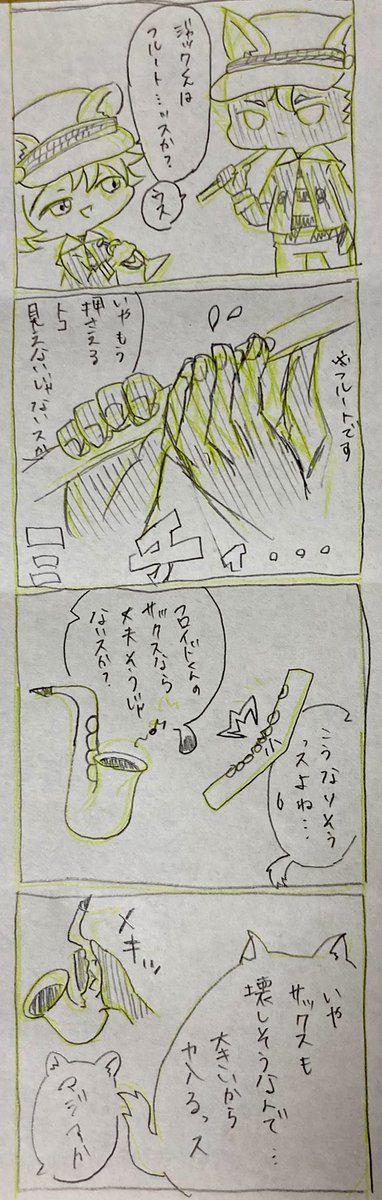 ジャックくんは
フルート…ッスか?
ウス
※フルートです
いやもう
押さえる
トコ
見えないじゃないスか
こうなりそう
っスよね…
フロイドくんの
サックスなら
大丈夫そうじゃ
ないスか?
いや
サックスも
壊しそうなんで…
大きいから
力入るっス
メキッ
マジっスか